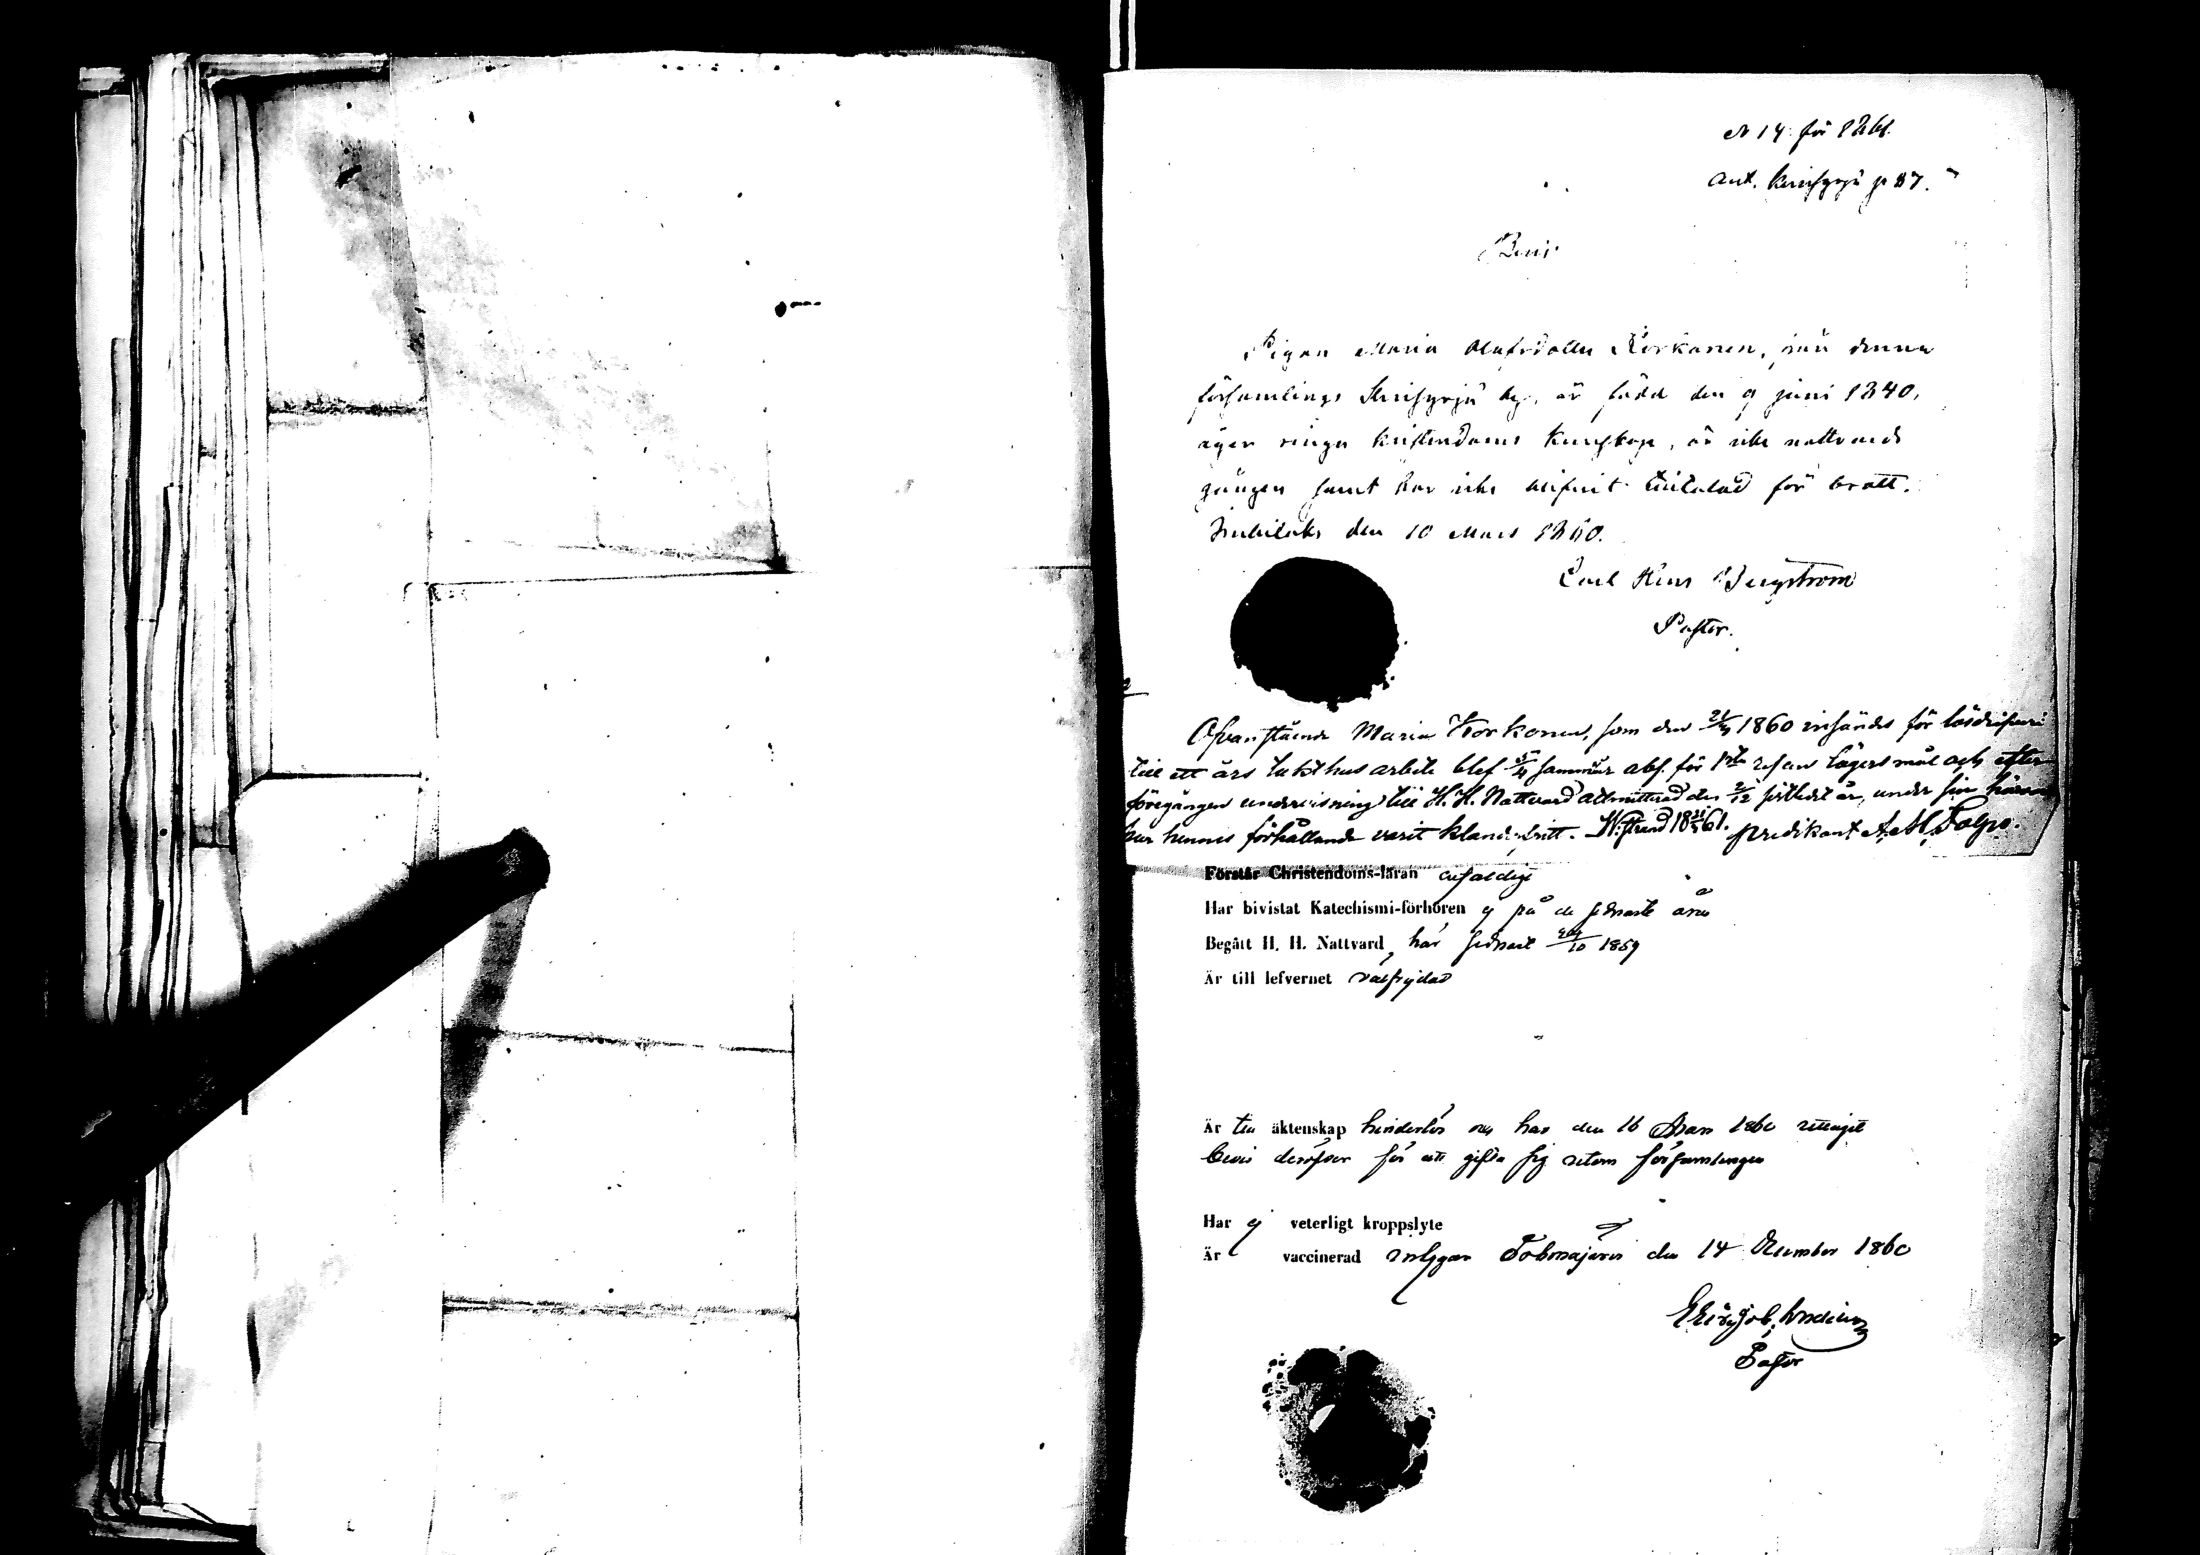 N 14 för 1861.
Ant. p 87.
Bevis
Pigan Maria Olofsdotter Korkonen, från denna
församlings by, är född den 9 juni 1840,
äger ringa kristendoms kunskap, är icke nattvards
gången samt har icke blifvit tilltalad för brott.
den 10 Mars 1860.
Carl Bergström
Pastor.
Ofvanstående Maria Korkonen, som den 1860 insändes för lösdrifveri
till ett års tukthus arbete blef sammaår abs. för 1sta resan lägersmål och efter
föregången undervisning till H. H. Nattvard admitterad den 2/12 sistledit år, under sin härvaro
har hennes förhållande varit klanderfritt. 1861. predikant A. M.
Förstår Christendoms-läran enfaldigt
Har bivistat Katechismi-förhören ej på de sednaste åren
Begått H. H. Nattvard, här sednast 1859
Är till lefvernet välfrejdad
Är till äktenskap hinderlös och har den 16 Mars 1860 uttagit
bevis deröfver för att gifta sig utom församlingen
Har ej veterligt kroppslyte
Är vaccinerad intygar Tohmajärvi den 14 December 1860
Pastor